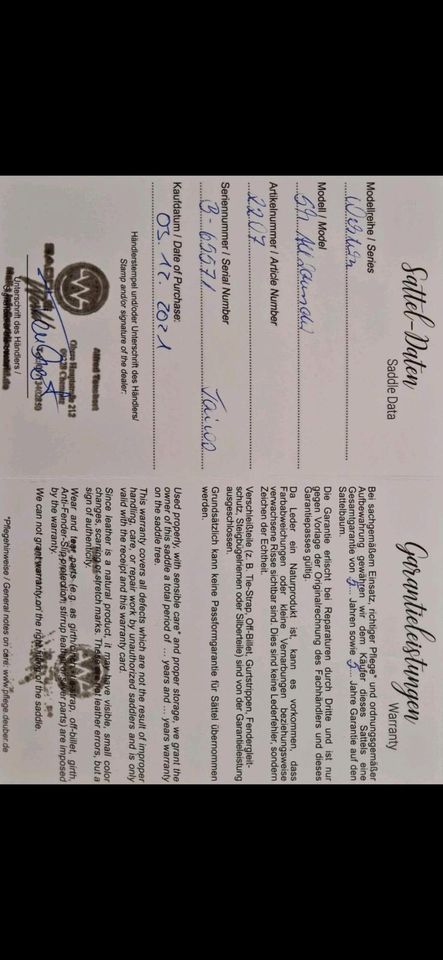 Sattel-Daten
Saddle Data
Modellreihe / Series
Western
Modell / Model
Artikelnummer / Article Number
2207
Seriennummer / Serial Number
3-65571
Kaufdatum / Date of Purchase:
03.12.2021
Händlerstempel und/oder Unterschrift des Händlers/
Stamp and/or signature of the dealer:
Unterschrift des Händlers /
Garantieleistungen
Warranty
Bei sachgemäßem Einsatz, richtiger Pflege* und ordnungsgemäßer
Aufbewahrung gewähren wir dem Käufer dieses Sattels eine
Gesamtgarantie von 5 Jahren sowie Jahre Garantie auf den
Sattelbaum.
Die Garantie erlischt bei Reparaturen durch Dritte und ist nur
gegen Vorlage der Originalrechnung des Fachhändlers und dieses
Garantiepasses gültig.
Da Leder ein Naturprodukt ist, kann es vorkommen, dass
Farbabweichungen oder kleine Vernarbungen beziehungsweise
verwachsene Risse sichtbar sind. Dies sind keine Lederfehler, sondern
Zeichen der Echtheit.
Verschleißteile (z. B. Tie-Strap, Off-Billet, Gurtstrippen, Fendergleit-
schutz, Steigbügelriemen oder Silberteile) sind von der Garantieleistung
ausgeschlossen.
Grundsätzlich kann keine Passformgarantie für Sättel übernommen
werden.
Used properly, with sensible care* and proper storage, we grant the
owner of this saddle a total period of ... years and ... years warranty
on the saddle tree.
This warranty covers all defects which are not the result of improper
handling, care, or repair work by unauthorized saddlers and is only
valid with the receipt and this warranty card.
Since leather is a natural product, it may have visible, small color
changes, scars or stretch marks. These are not leather errors, but a
sign of authenticity.
Wear and tear parts (e.g. as girth, tie-strap, off-billet, girth,
Anti-Fender-Slip protection, stirrup leathers, silver parts) are imposed
by the warranty.
We can not grant warranty on the right fitting of the saddle.
*Pflegehinweise / General notes on care: www.pflege.deuber.de